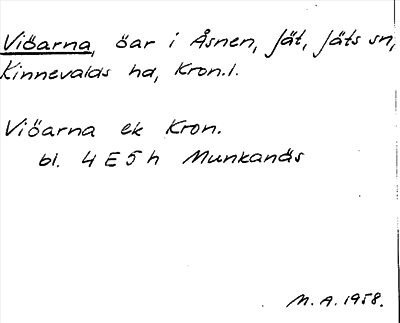 Viöarna, öar i Åsnen, Jät, Jäts sn,
Kinnevalds hd, Kron.l.
Viöarna ek Kron.
bl. 4 E 5 h Munkanäs
M.A. 1958.